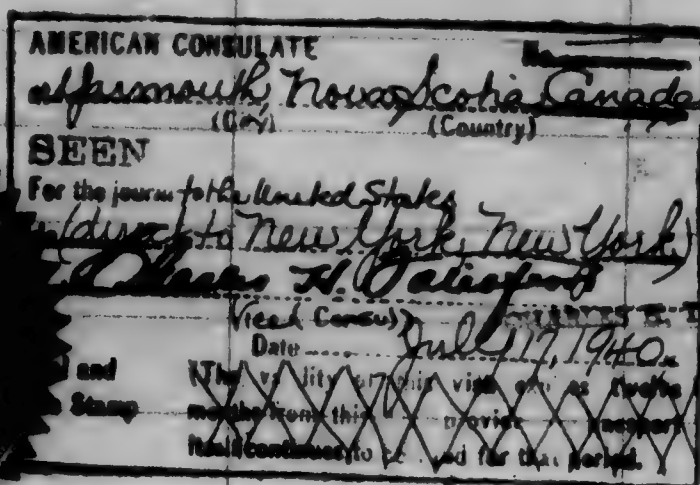 AMERICAN CONSULATE No.
at Yarmouth, Nova Scotia Canada
(City) (Country)
SEEN
For the journey to the United States
direct to New York, New York
Charles H.
Vice Consul
Date July 17, 1940
l and
Stamp
(The validity of this visa expires twelve
months from this date provided the passport
itself continues to be valid for that period.